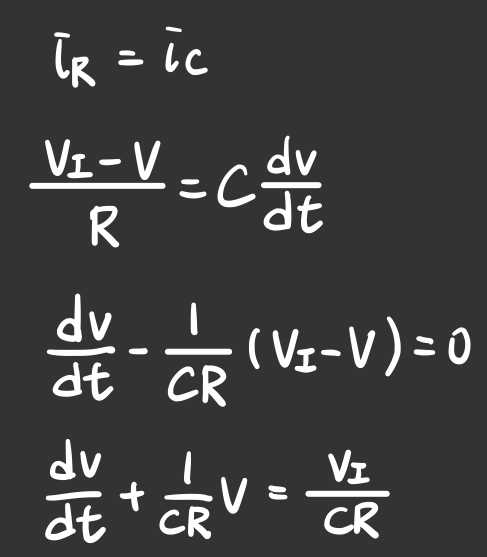 i_R = i_C
(V_I - V)/R = C dv/dt
dv/dt - 1/CR (V_I - V) = 0
dv/dt + 1/CR V = V_I/CR